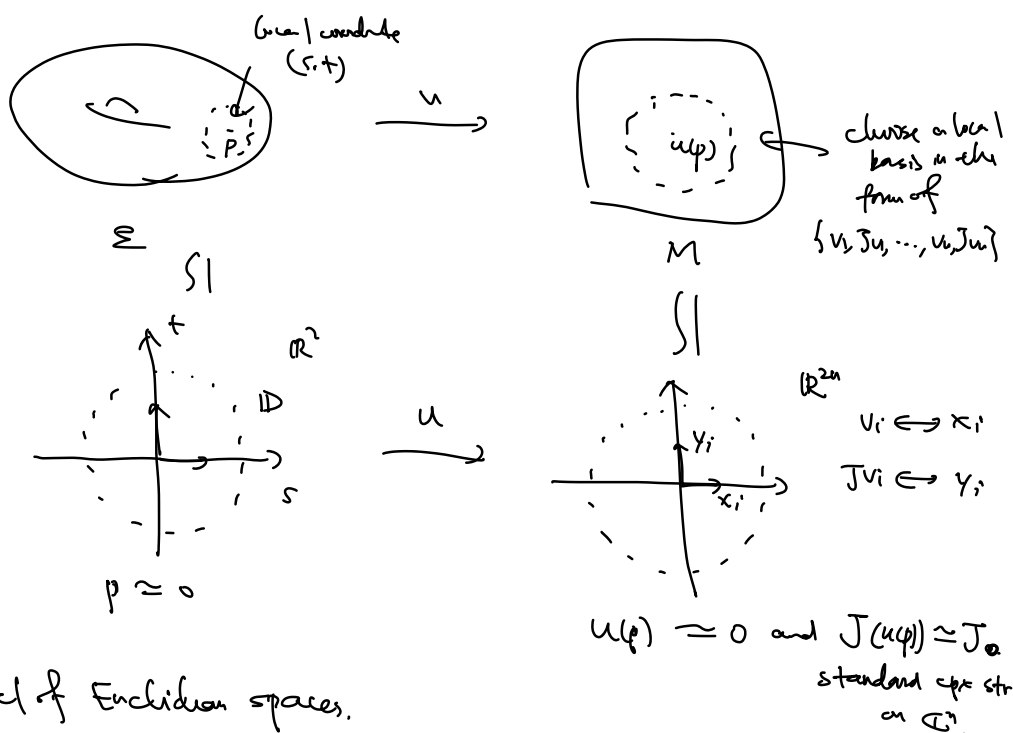 local coordinate
(s,t)
u
p
u(p)
choose a local
basis in the
form of
{v₁, Jv₁, ..., vₙ, Jvₙ}
Σ
M
t
ℝ²
𝔻
s
u
ℝ²ⁿ
yᵢ
xᵢ
vᵢ ↔ xᵢ
Jvᵢ ↔ yᵢ
p ≃ 0
u(p) ≃ 0 and J(u(p)) ≃ J₀
standard cpx str
on ℂⁿ
of Euclidean spaces.